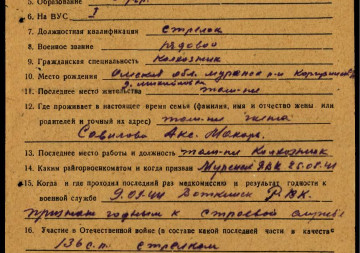 5. Образование
6. На ВУС 1
7. Должностная квалификация стрелок
8. Военное звание рядовой
9. Гражданская специальность Колхозник
10. Место рождения Омская обл.
11. Последнее место жительства там-же
12. Где проживает в настоящее время семья (фамилия, имя и отчество жены или
родителей и точный их адрес) там-же жена
13. Последнее место работы и должность там-же Колхозник
14. Каким райгорвоенкоматом и когда призван РВК
15. Когда и где проходил последний раз медкомиссию и результат годности к
военной службе 9.08.41 РВК.
признан годным к строевой службе
16. Участие в Отечественной войне (в составе какой последней части и в качестве
136 с.п. стрелком